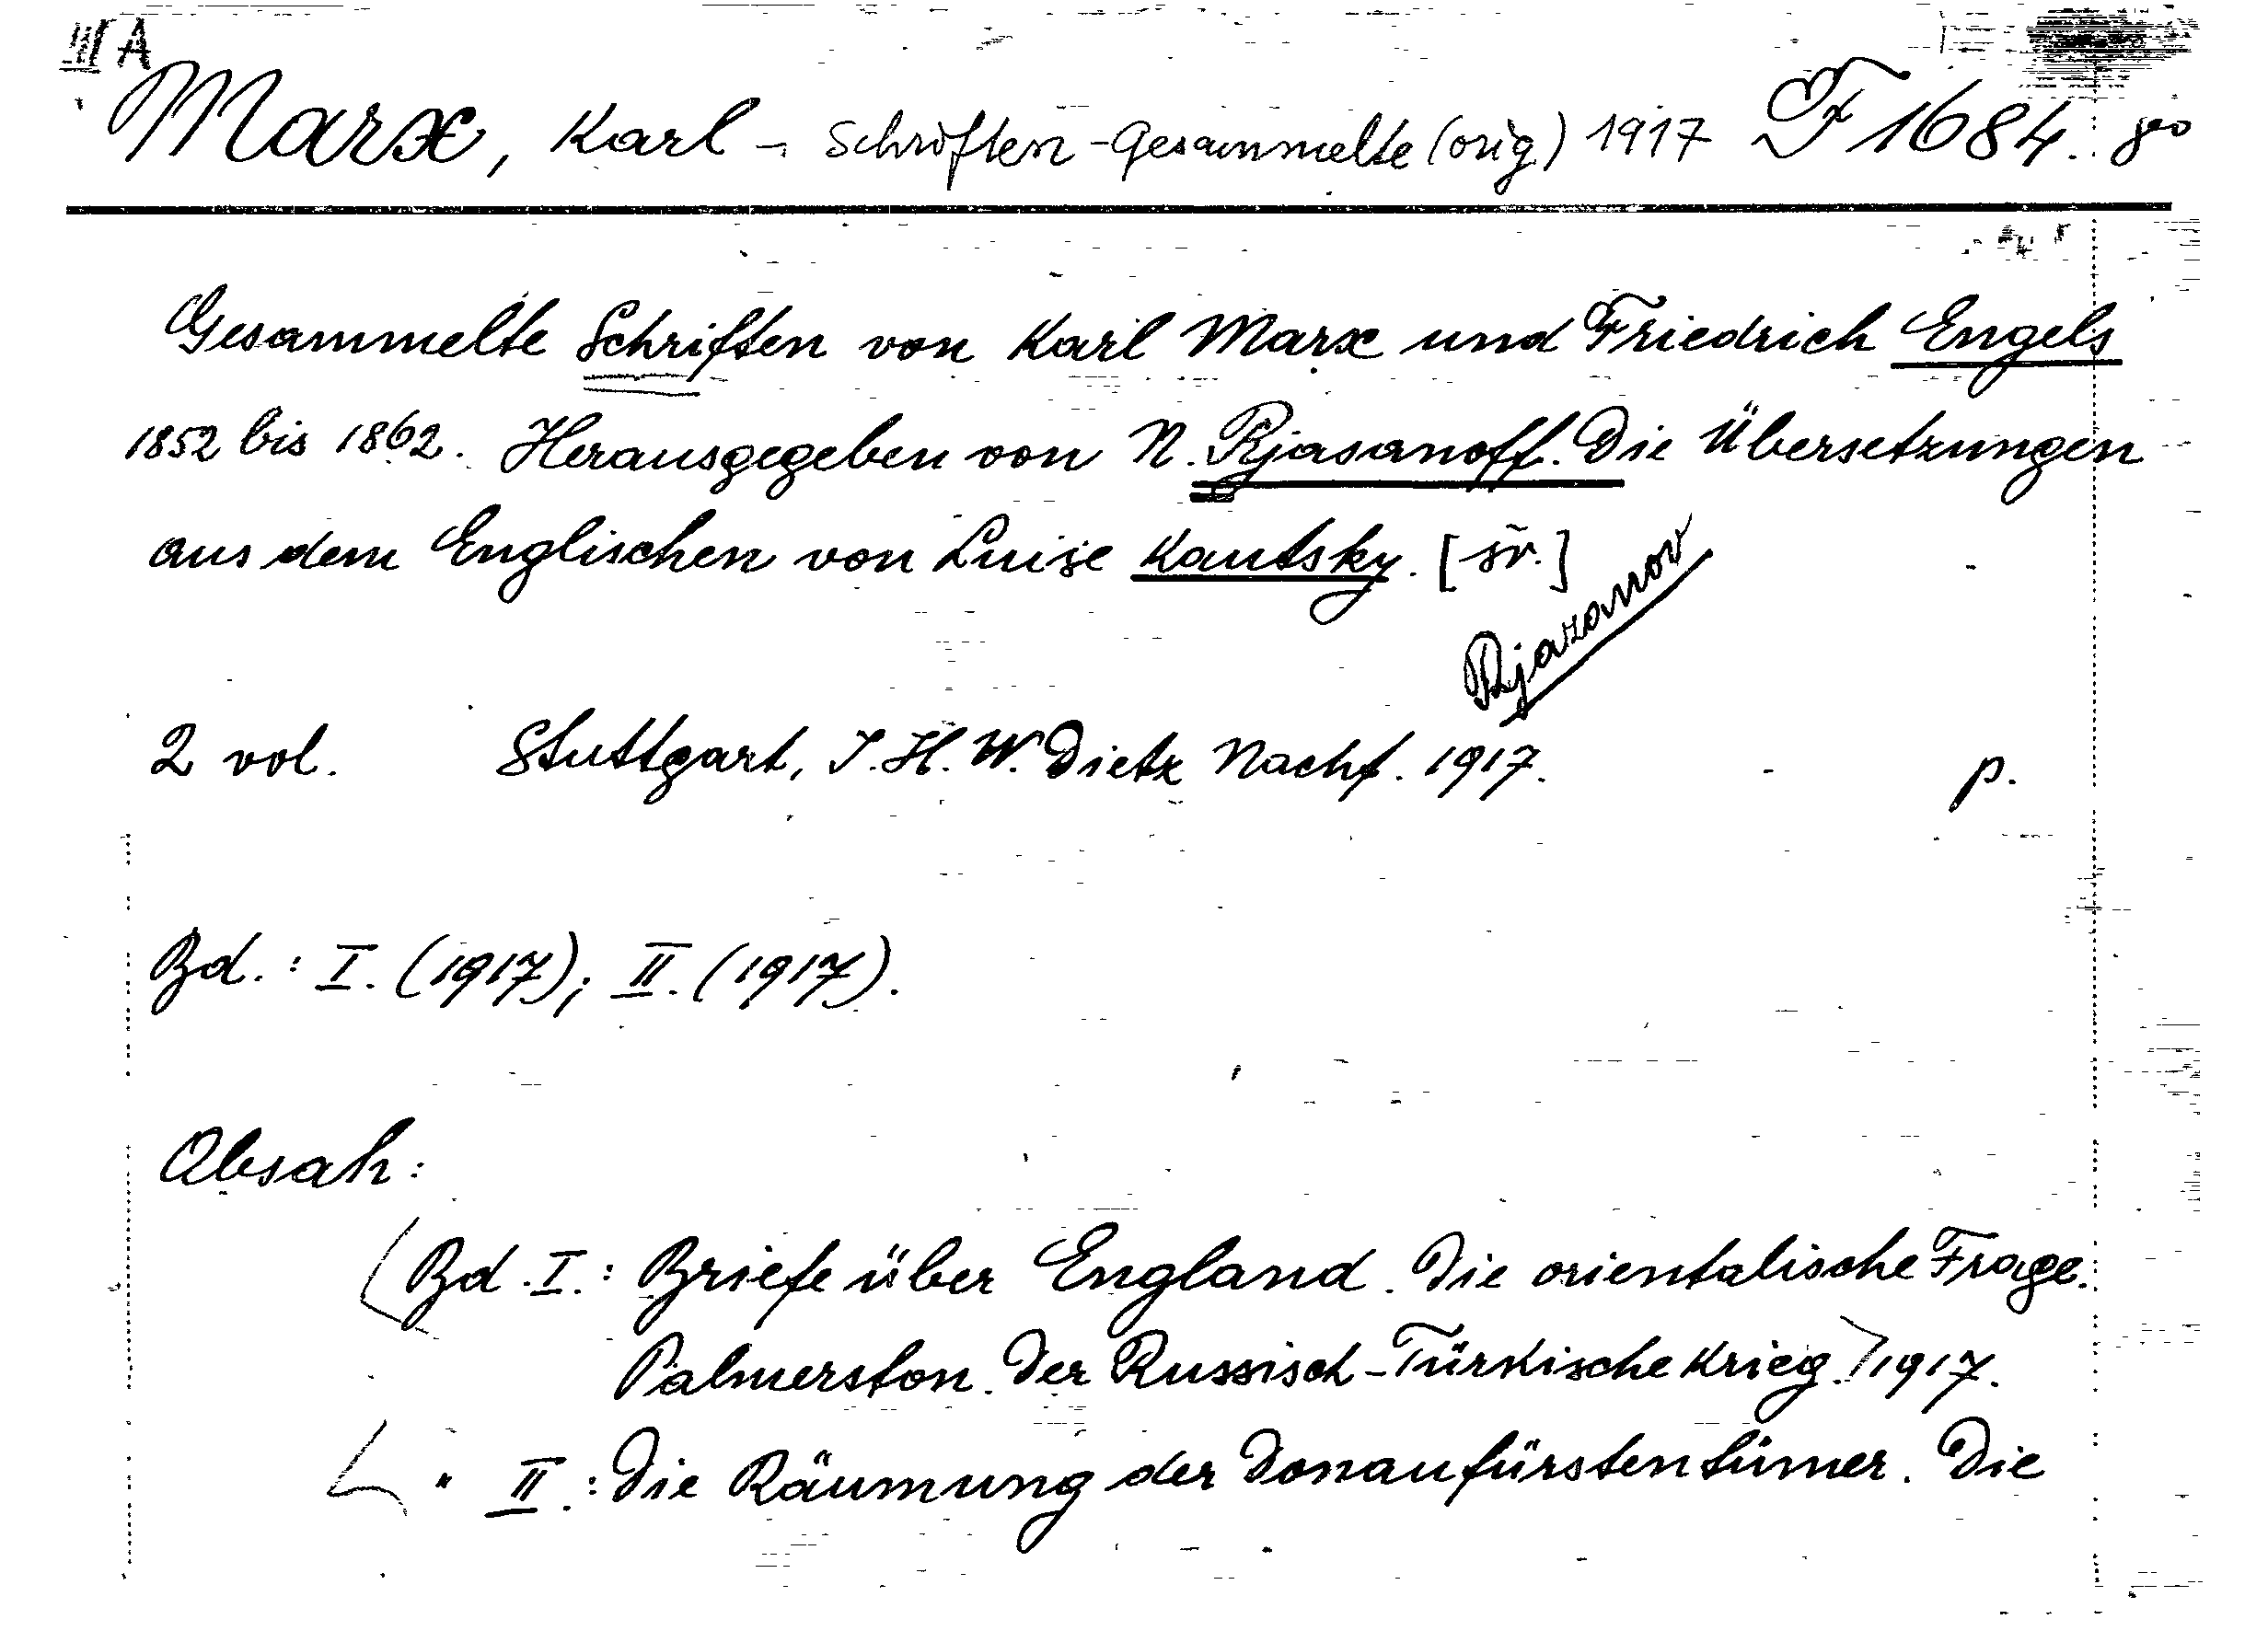 III A
Marx, Karl - Schriften - Gesammelte (orig.) 1917 F 1684. 8°
Gesammelte Schriften von Karl Marx und Friedrich Engels
1852 bis 1862. Herausgegeben von N. Rjasanoff. Die Übersetzungen
aus dem Englischen von Luise Kautsky. [šv.]
Rjazanov
2 vol. Stuttgart, J. H. W. Dietz Nachf. 1917. p.
Bd.: I. (1917); II. (1917).
Obsah:
Bd. I.: Briefe über England. Die orientalische Frage.
Palmerston. Der Russisch-Türkische Krieg. 1917.
" II.: Die Räumung der Donaufürstentümer. Die